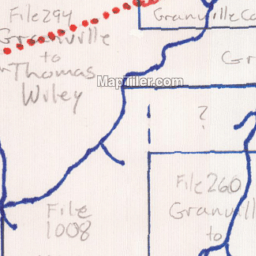 File 294
Granville
to
Thomas
Wiley
Granville Co
Gr
MapTiler.com
?
File 260
Granville
to
File
1008